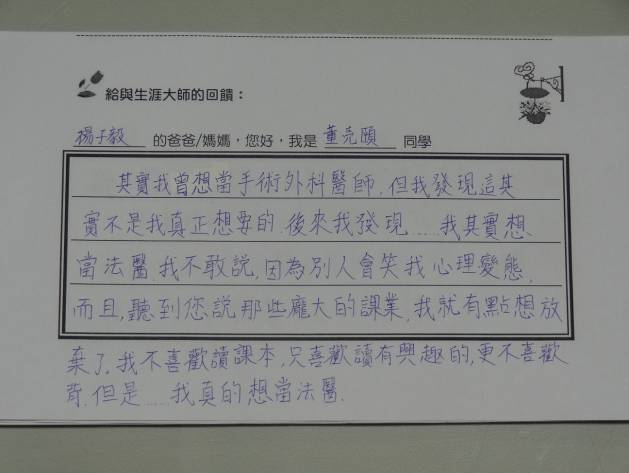 給與生涯大師的回饋：
楊子毅 的爸爸/媽媽，您好，我是 董亮頤 同學
其實我曾想當手術外科醫師.但我發現這其
實不是我真正想要的.後來我發現……我其實想
當法醫.我不敢說,因為別人會笑我心理變態.
而且,聽到您說那些龐大的課業,我就有點想放
棄了,我不喜歡讀課本,只喜歡讀有興趣的,更不喜歡
背.但是……我真的想當法醫.